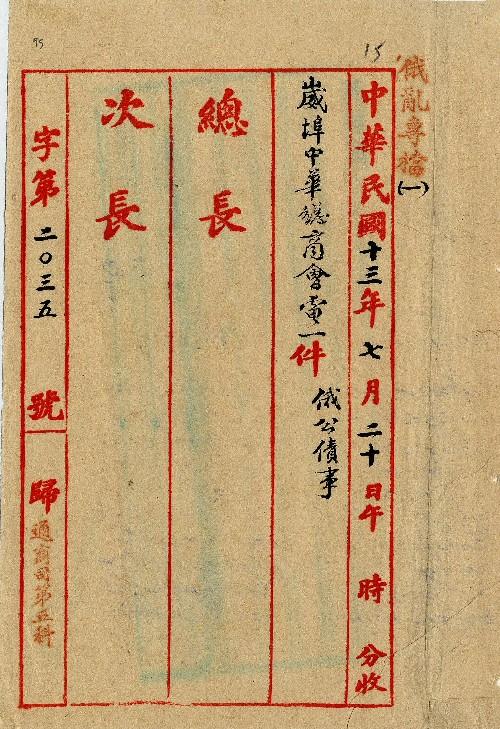 俄亂專檔
(一)
15
95
中華民國十三年七月二十日午 時 分收
崴埠中華總商會電一件
俄公債事
總長
次長
字第二〇三五號
歸通商司第五科